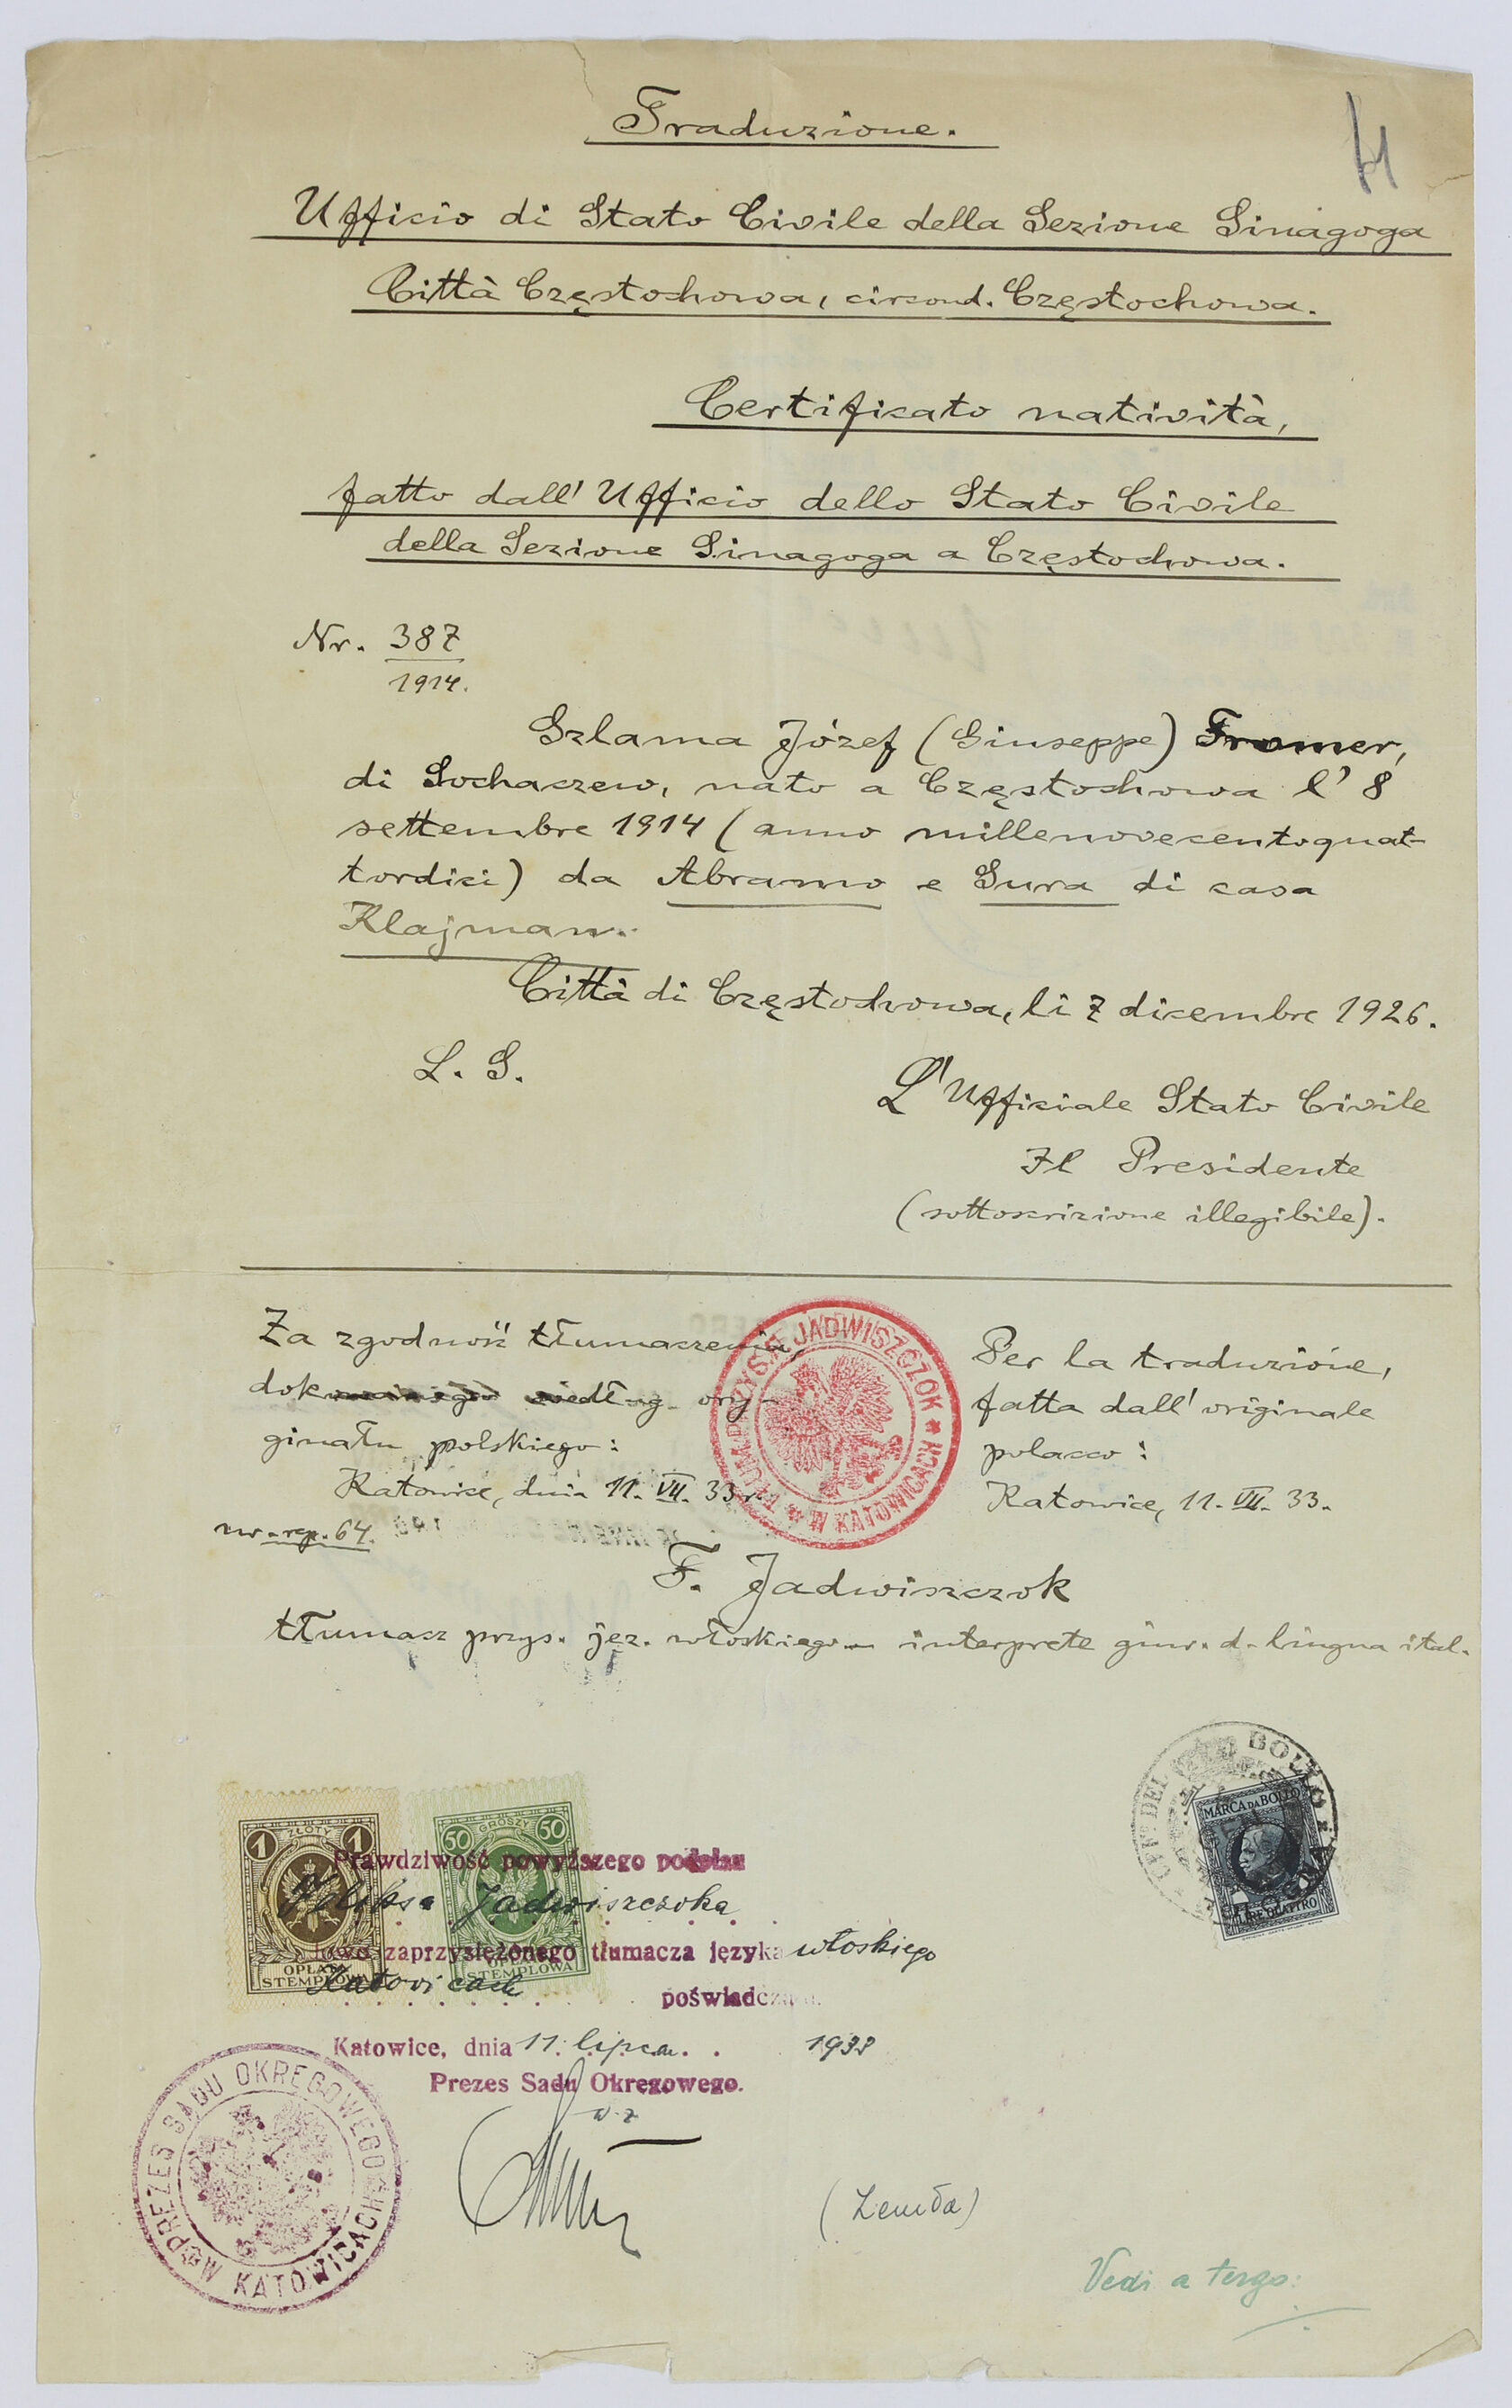 Traduzione.
Ufficio di Stato Civile della Sezione Sinagoga
Città Częstochowa, circond. Częstochowa.
Certificato natività,
fatto dall' Ufficio dello Stato Civile
della Sezione Sinagoga a Częstochowa.
Nr. 387
1914.
Szlama Józef (Giuseppe) Fromer,
di Sochaczew, nato a Częstochowa l' 8
settembre 1914 (anno millenovecentoquat-
tordici) da Abramo e Sura di casa
Klajman.
Città di Częstochowa, li 7 dicembre 1926.
L. S.
L'Ufficiale Stato Civile
Il Presidente
(sottoscrizione illegibile).
Za zgodność tłumaczenia
według ory-
ginału polskiego:
Katowice, dnia 11. VII. 33 r.
nr. rep. 64.
TŁUM. PRZYS. F. JADWISZCZOK
W KATOWICACH
Per la traduzione,
fatta dall' originale
polacco:
Katowice, 11. VII. 33.
F. Jadwiszczok
tłumacz przys. jęz. włoskiego – interprete giur. d. lingua ital.
1 ZŁOTY 1
OPŁATA
STEMPLOWA
50 GROSZY 50
OPŁATA
STEMPLOWA
BOLLO
MARCA DA BOLLO
LIRE QUATTRO
Prawdziwość powyższego podpisu
Feliksa Jadwiszczoka
zaprzysiężonego tłumacza języka włoskiego
Katowicach
poświadczam.
Katowice, dnia 11. lipca 1933
Prezes Sądu Okręgowego.
w z
PREZES SĄDU OKRĘGOWEGO
W KATOWICACH
(Zemła)
Vedi a tergo: